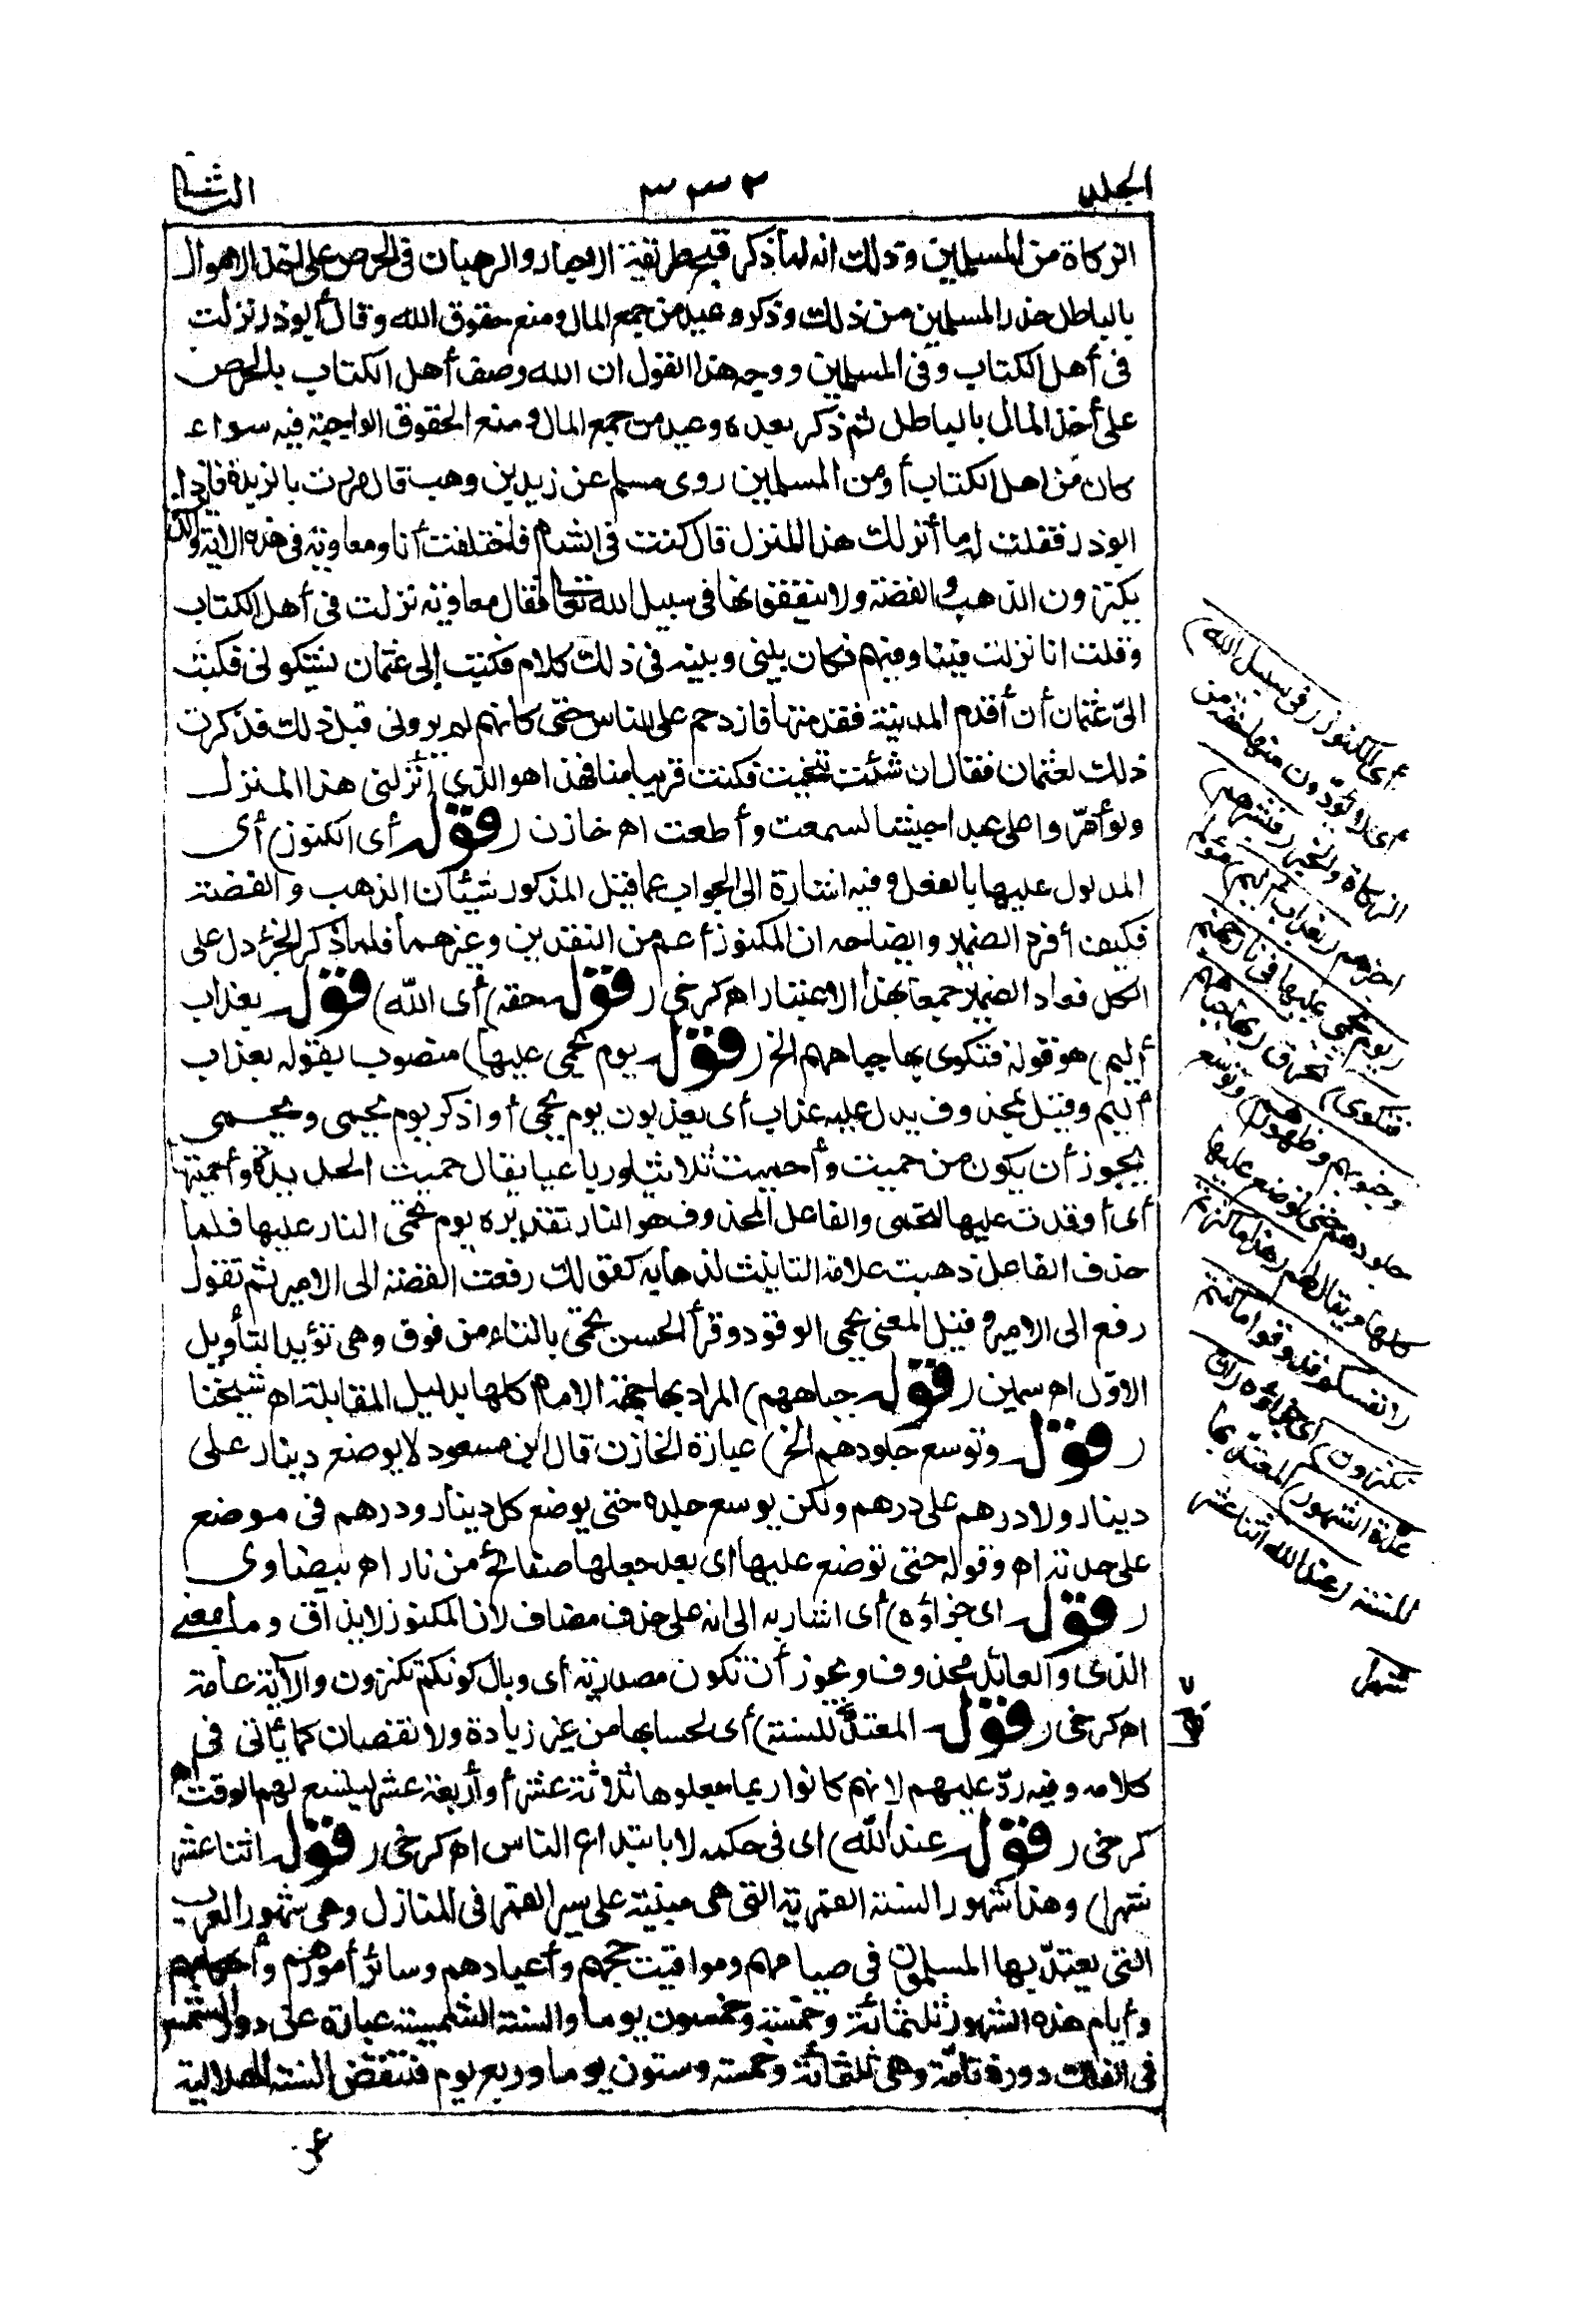 الجلد
٣٣٢
الثانى
الزكاة من المسلمين وذلك انه لما ذكر قبح طريقة الاحبار والرهبان فى الحرص على اخذ الاموال
بالباطل حذر المسلمين من ذلك وذكر وعيد من جمع المال ومنع حقوق الله وقال أبوذر نزلت
فى أهل الكتاب وفى المسلمين ووجه هذا القول ان الله وصف أهل الكتاب بالحرص
على أخذ المال بالباطل ثم ذكر بعده وعيد من جمع المال ومنع الحقوق الواجبة فيه سواء
كان من اهل الكتاب أو من المسلمين روى مسلم عن زيد بن وهب قال مررت بالربذة فاذا
ابوذر فقلت له ما أنزلك هذا المنزل قال كنت فى الشام فاختلفت أنا ومعاوية فى هذه الاية والذين
يكنزون الذهب والفضة ولا ينفقونها فى سبيل الله تعالى فقال معاوية نزلت فى أهل الكتاب
وقلت انا نزلت فينا وفيهم فكان بينى وبينه فى ذلك كلام فكتب إلى عثمان يشكونى فكتب
الىّ عثمان أن أقدم المدينة فقدمتها فازدحم على الناس حتى كانهم لم يرونى قبل ذلك فذكرت
ذلك لعثمان فقال ان شئت تنحيت فكنت قريبا منا فهذا هو الذى أنزلنى هذا المنزل
ولو أمّروا على عبدا حبشيا لسمعت وأطعت اه خازن (قوله أى الكنوز) أى
المدلول عليها بالفعل وفيه اشارة الى الجواب عما قيل المذكور شيئان الذهب والفضة
فكيف أفرد الضمير وايضاحه ان المكنوز أعم من النقدين وغيرهما فلما ذكر الجزء دل على
الكل فعاد الضمير جمعا بهذا الاعتبار اه كرخى (قوله حقه) أى الله) قوله بعذاب
أليم) هو قوله فتكوى بها جباههم الخ (قوله يوم يحمى عليها) منصوب بقوله بعذاب
أليم وقيل بمحذوف يدل عليه عذاب أى يعذبون يوم يحمى أو اذكر يوم يحمى ويحمى
يجوز أن يكون من حميت وأحميت ثلاثيا ورباعيا يقال حميت الحديدة وأحميتها
أى أوقدت عليها لتحمى والفاعل المحذوف هو النار تقديره يوم تحمى النار عليها فلما
حذف الفاعل ذهبت علامة التانيث لذهابه كقولك رفعت القضة الى الامير ثم تقول
رفع الى الامير وقيل المعنى يحمى الوقود وقرأ الحسن تحمى بالتاء من فوق وهى تؤيد التأويل
الاوّل اه سمين (قوله جباههم) المراد بها جهة الامام كلها بدليل المقابلة اه شيخنا
(قوله وتوسع جلودهم الخ) عبارة الخازن قال ابن مسعود لا يوضع دينار على
دينار ولا درهم على درهم ولكن يوسع جلده حتى يوضع كل دينار ودرهم فى موضع
على حدته اه وقوله حتى توضع عليها اى بعد جعلها صفائح من نار اه بيضاوى
(قوله اى جزاؤه) أى اشار به الى انه على حذف مضاف لان المكنوز لا يذاق وما بمعنى
الذى والعائد محذوف ويجوز أن تكون مصدرية أى وبال كونكم تكنزون والآية عامة
اه كرخى (قوله المعتد بها للسنة) أى لحسابها من غير زيادة ولا نقصان كما يأتى فى
كلامه وفيه ردّ عليهم لانهم كانوا ربما جعلوها ثلاثة عشر أو أربعة عشر ليتسع لهم الوقت اه
كرخى (قوله عند الله) اى فى حكمه لا بابتداع الناس اه كرخى (قوله اثنا عشر
شهرا) وهذا شهور السنة القمرية التى هى مبنية على سير القمر فى المنازل وهى شهور العرب
التى يعتدّ بها المسلمون فى صيامهم ومواقيت حجهم وأعيادهم وسائر أمورهم وأحكامهم
وأيام هذه الشهور ثلثمائة وخمسة وخمسون يوما والسنة الشمسية عبارة عن دور الشمس
فى الفلك دورة تامّة وهى ثلثمائة وخمسة وستون يوما وربع يوم فتنقض السنة الهلالية
أى الكنوز (فى سبيل الله)
أى لا يؤدّون منها حقه من
الزكاة والخير (فبشرهم)
اخبرهم (بعذاب أليم) مؤلم
(يوم يحمى عليها فى نار جهنم
فتكوى) تحرق (بها جباههم
وجنوبهم وظهورهم) وتوسع
جلودهم حتى توضع عليها
كلها ويقال لهم (هذا ما كنزتم
لانفسكم فذوقوا ما كنتم
تكنزون) أى جزاؤه (ان
عدّة الشهور) المعتد بها
للسنة (عند الله اثنا عشر
شهرا
عن